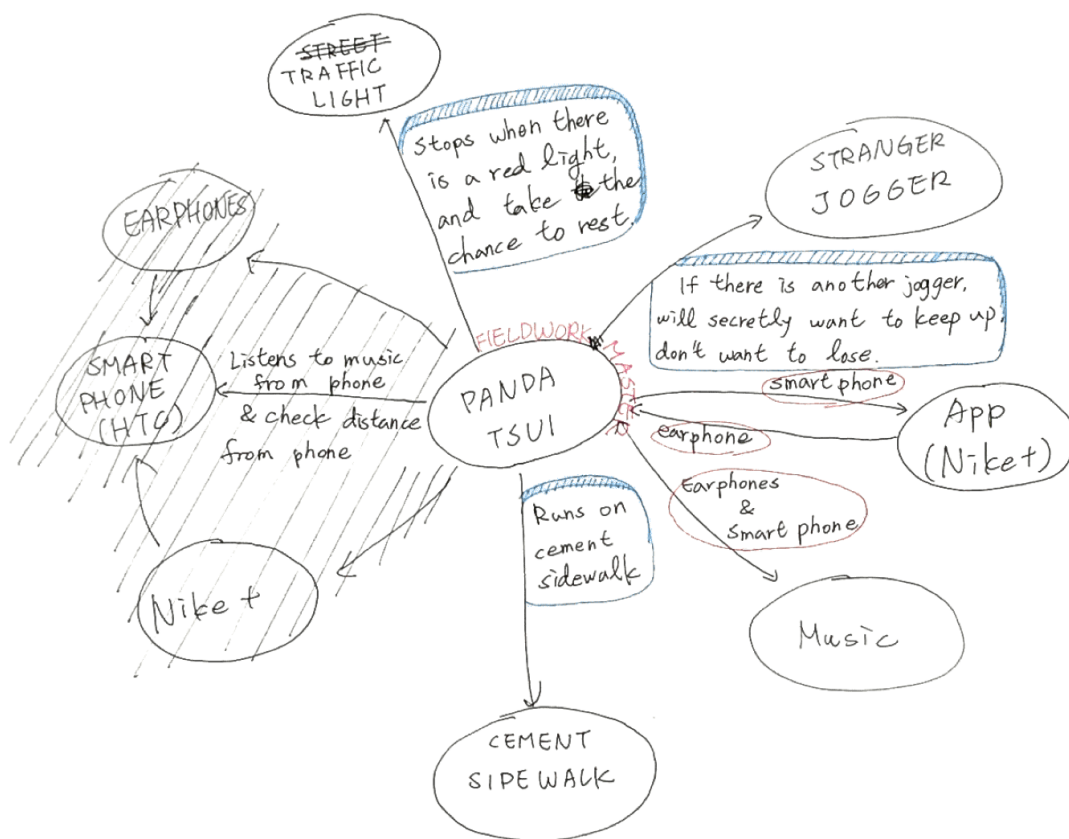 STREET
TRAFFIC
LIGHT
Stops when there
is a red light,
and take the
chance to rest.
STRANGER
JOGGER
EARPHONES
If there is another jogger,
will secretly want to keep up,
don't want to lose.
FIELDWORK MASTER
SMART
PHONE
(HTC)
Listens to music
from phone
& check distance
from phone
PANDA
TSUI
smart phone
earphone
App
(Nike+)
Earphones
&
smart phone
Runs on
cement
sidewalk
Nike +
Music
CEMENT
SIDEWALK